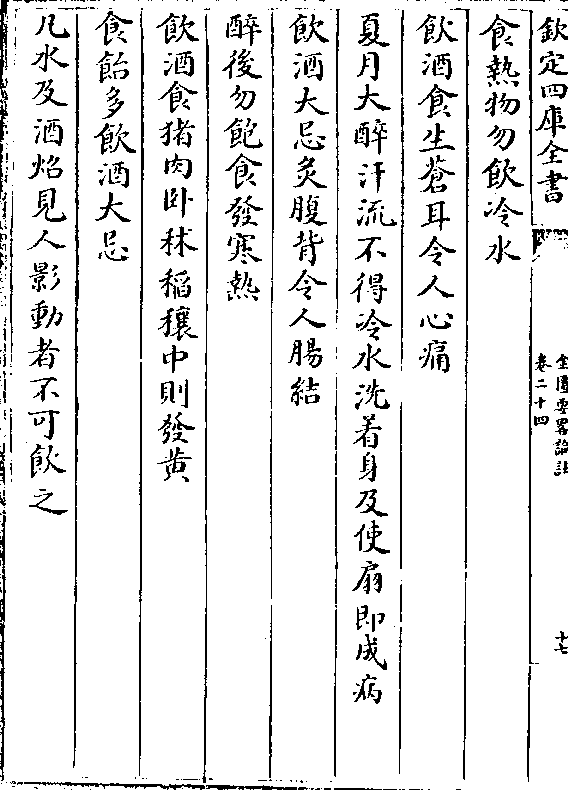 欽定四庫全書
金匱要畧論註
卷二十四
十七
食熱物勿飲冷水
飲酒食生蒼耳令人心痛
夏月大醉汗流不得冷水洗着身及使扇即成病
飲酒大忌灸腹背令人腸結
醉後勿飽食發寒熱
飲酒食猪肉卧秫稲穰中則發黄
食飴多飲酒大忌
凡水及酒焰見人影動者不可飲之